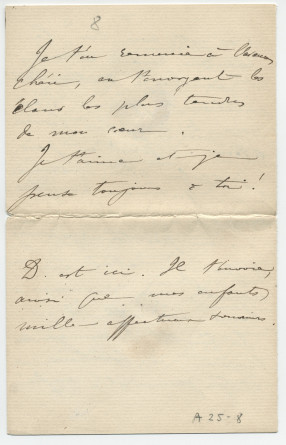 8
Je t'en remercie à 
chéri, en t'envoyant les
élans les plus tendres
de mon cœur.
Je t'aime et je
pense toujours à toi!
D. est ici. Il t'envoie,
ainsi que mes enfants,
mille affectueux souvenirs.
A 25-8